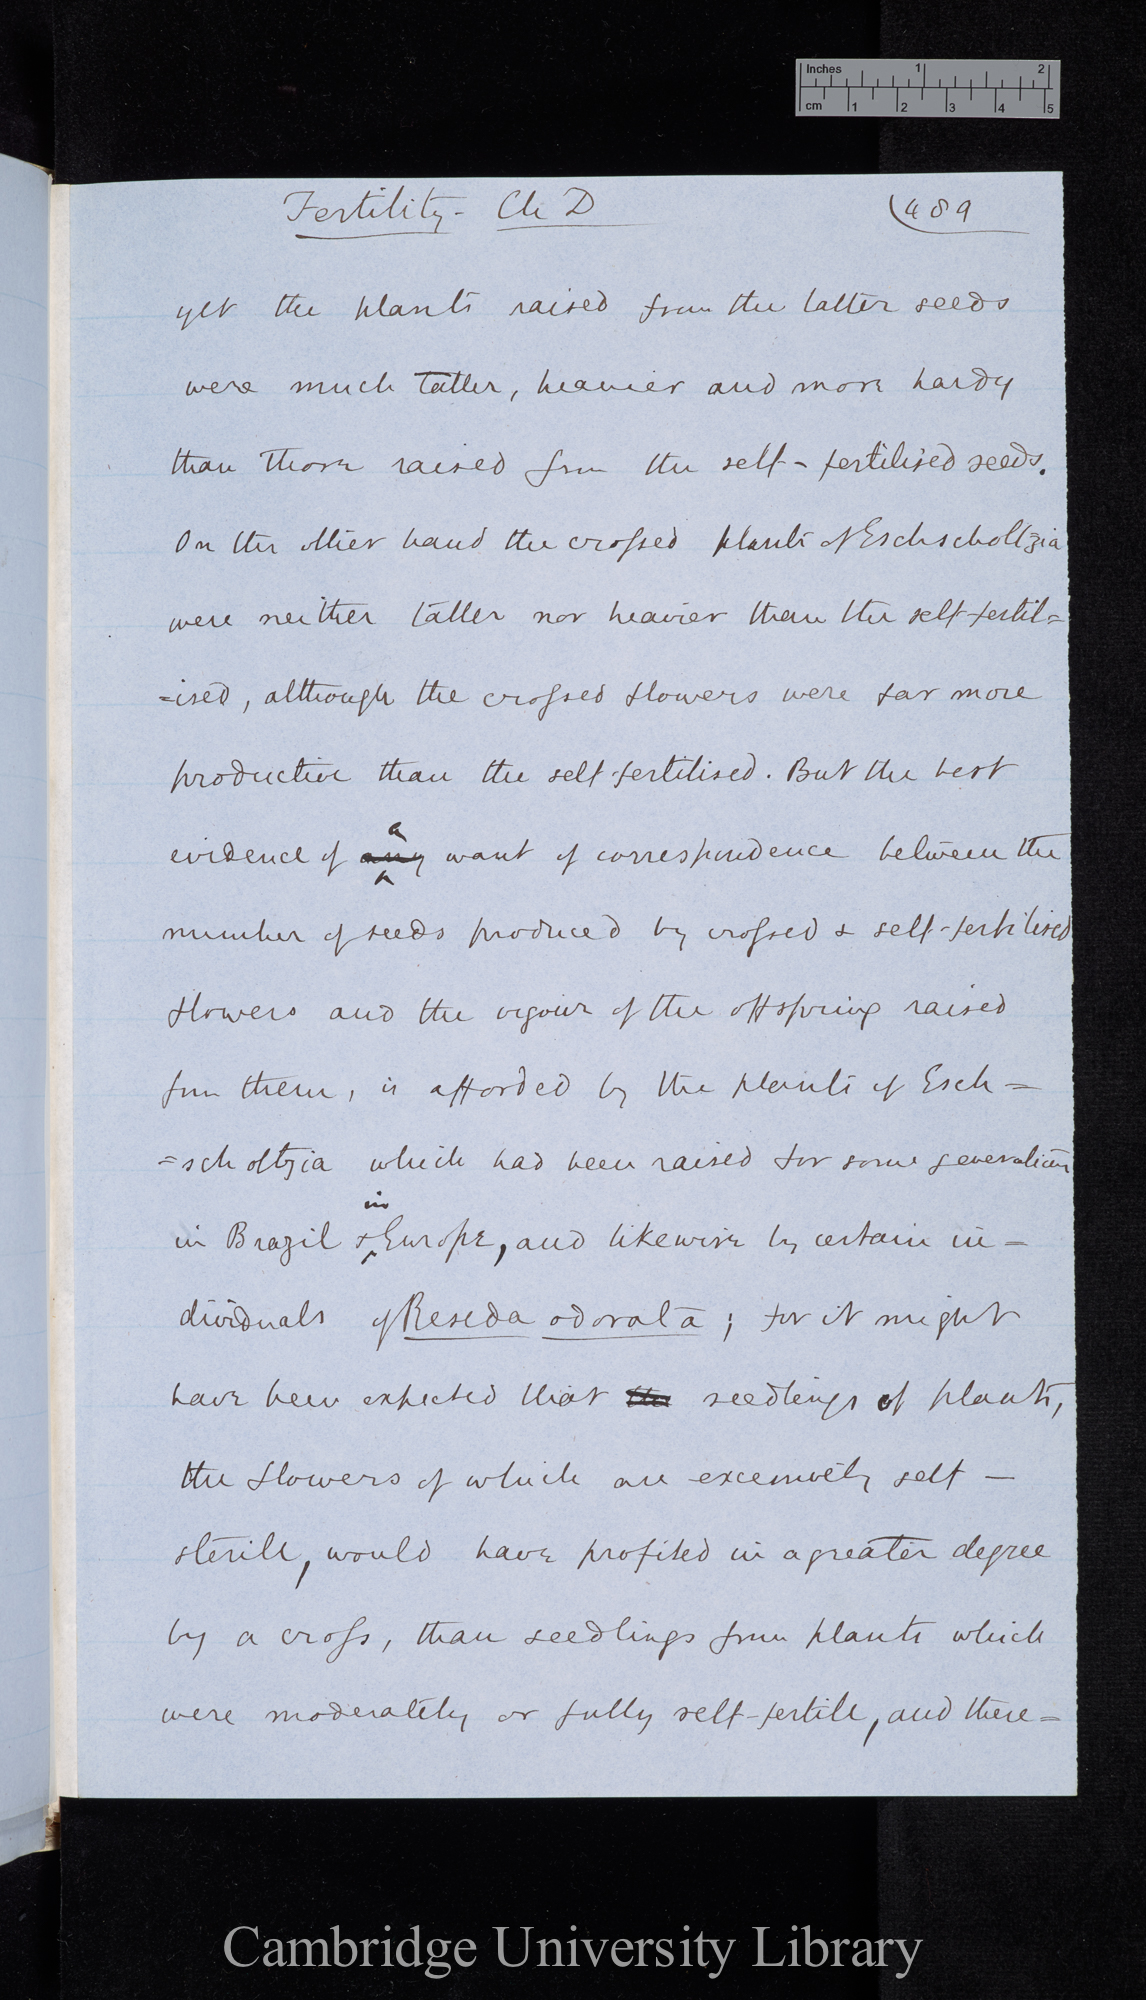 Inches 1 2
cm 1 2 3 4 5
Fertility - Ch D (489
yet the plants raised from the latter seeds
were much taller, heavier and more hardy
than those raised from the self-fertilised seeds.
On the other hand the crossed plants of Eschscholtzia
were neither taller nor heavier than the self-fertil=
=ised, although the crossed flowers were far more
productive than the self-fertilised. But the best
a
evidence of any want of correspondence between the
number of seeds produced by crossed & self-fertilised
flowers and the vigour of the offspring raised
from them, is afforded by the plants of Esch=
=scholtzia which had been raised for some generations
in
in Brazil & Europe, and likewise by certain in-
dividuals of Reseda odorata; for it might
have been expected that the seedlings of plants,
the flowers of which are excessively self-
sterile, would have profited in a greater degree
by a cross, than seedlings from plants which
were moderately or fully self-fertile, and there=
Cambridge University Library